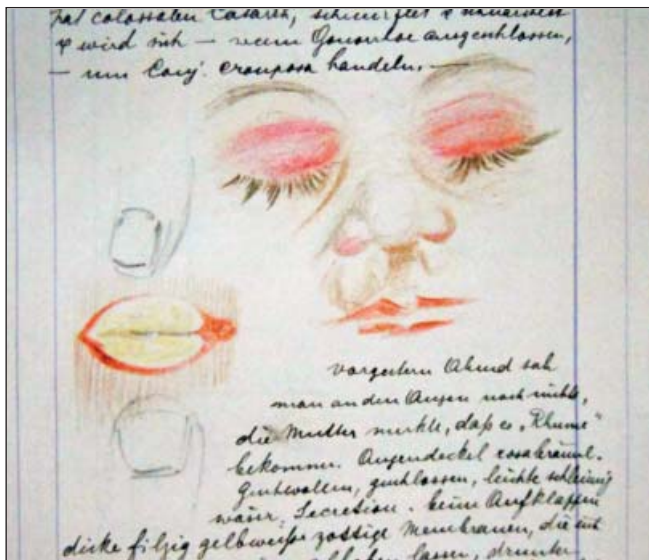 hat colossalen Catarrh, schnupfet &
& wird sich — wenn Gonorrhoe ausgeschlossen,
— um Conj. crouposa handeln. —
vorgestern Abend sah
man an den Augen noch nichts,
die Mutter merkte, daß es „Rhume"
bekomme. Augendeckel rosabräunl.
geschwollen, geschlossen, leichte schleimig
wässr. Secretion. beim Aufklappen
dicke filzig gelbweiße zottige Membranen, die sich
lassen, drunter